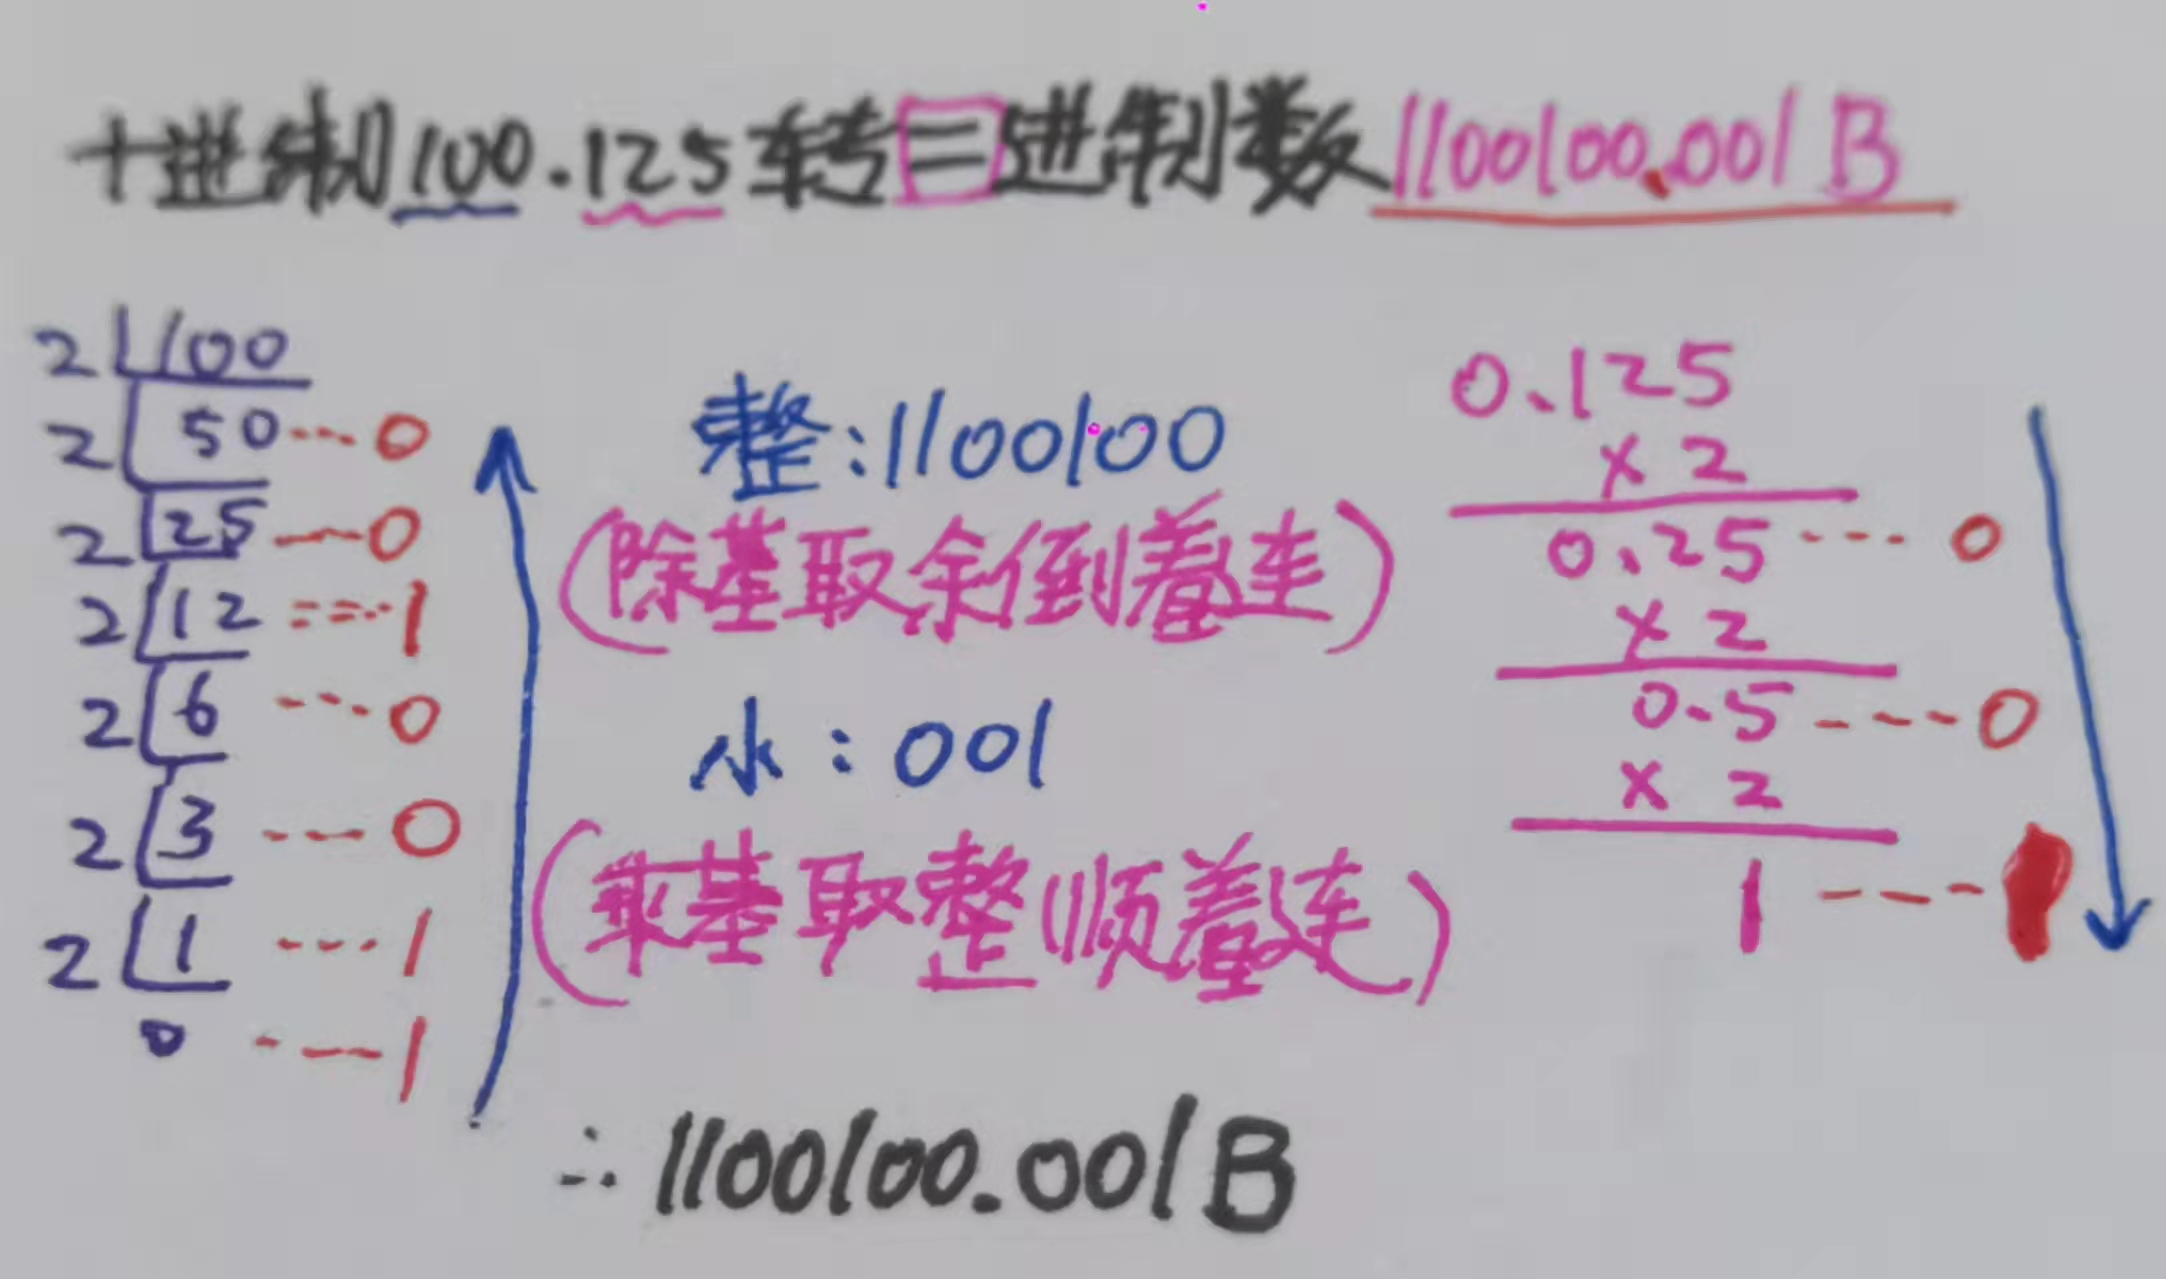 十进制100.125转二进制数1100100.001B
2 100
2 50 --- 0
2 25 --- 0
2 12 --- 1
2 6 --- 0
2 3 --- 0
2 1 --- 1
0 --- 1
整:1100100
(除基取余倒着连)
小:001
(乘基取整顺着连)
0.125
× 2
0.25 ---- 0
× 2
0.5 ---- 0
× 2
1 ---- 1
∴1100100.001B